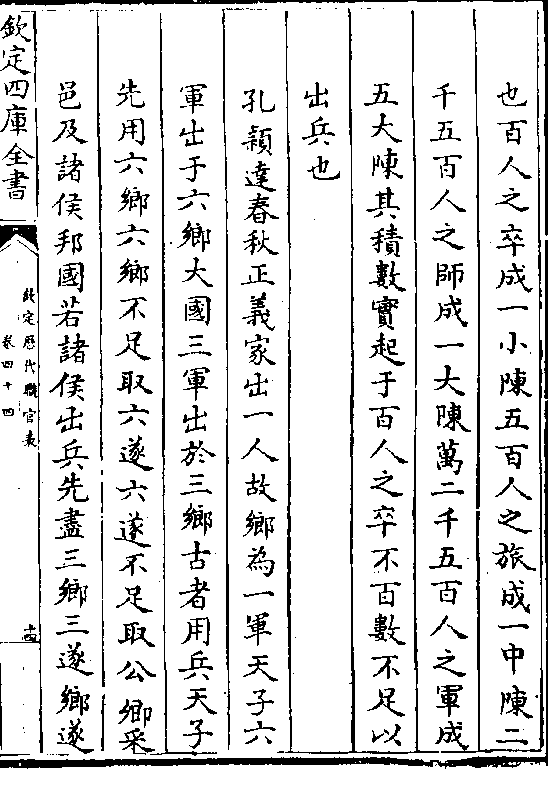 也百人之卒成一小陳五百人之旅成一中陳二
千五百人之師成一大陳萬二千五百人之軍成
五大陳其積數實起于百人之卒不百數不足以
出兵也
孔穎達春秋正義家出一人故鄉為一軍天子六
軍出于六鄉大國三軍出於三鄉古者用兵天子
先用六鄉六鄉不足取六遂六遂不足取公卿采
邑及諸侯邦國若諸侯出兵先盡三鄉三遂鄉遂
欽定四庫全書
欽定歷代職官表
卷四十四
十四